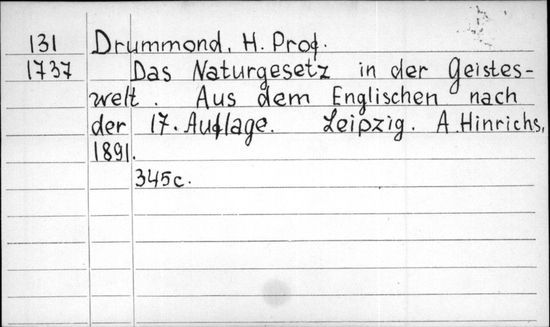 131 Drummond, H. Prof.
1737 Das Naturgesetz in der Geistes-
welt. Aus dem Englischen nach
der 17. Auflage. Leipzig. A. Hinrichs,
1891.
345c.